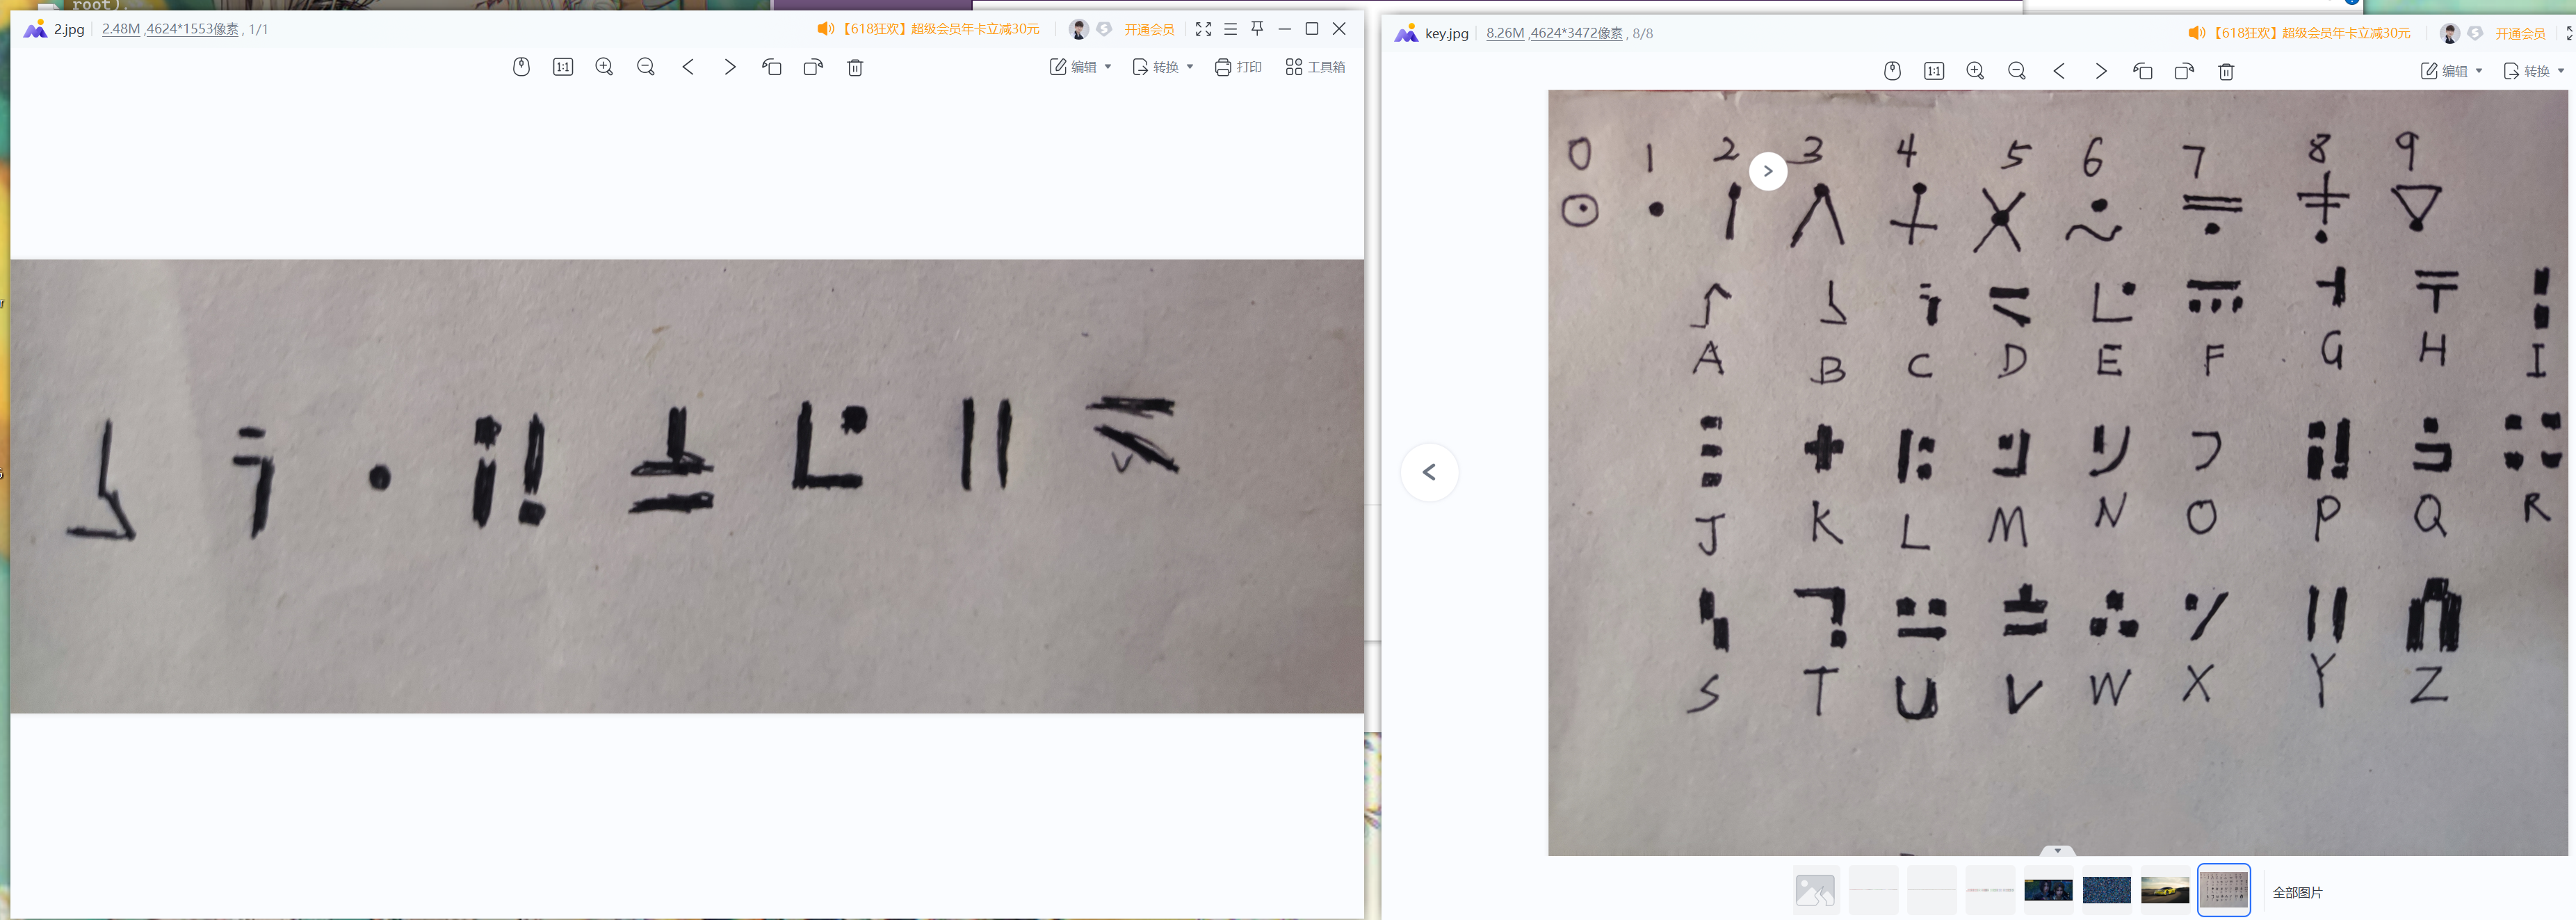 root).
2.jpg 2.48M ,4624*1553像素 , 1/1 【618狂欢】超级会员年卡立减30元 开通会员
1:1 编辑 转换 打印 工具箱
key.jpg 8.26M ,4624*3472像素 , 8/8 【618狂欢】超级会员年卡立减30元 开通会员
1:1 编辑 转换
0 1 2 3 4 5 6 7 8 9
A B C D E F G H I
J K L M N O P Q R
S T U V W X Y Z
全部图片